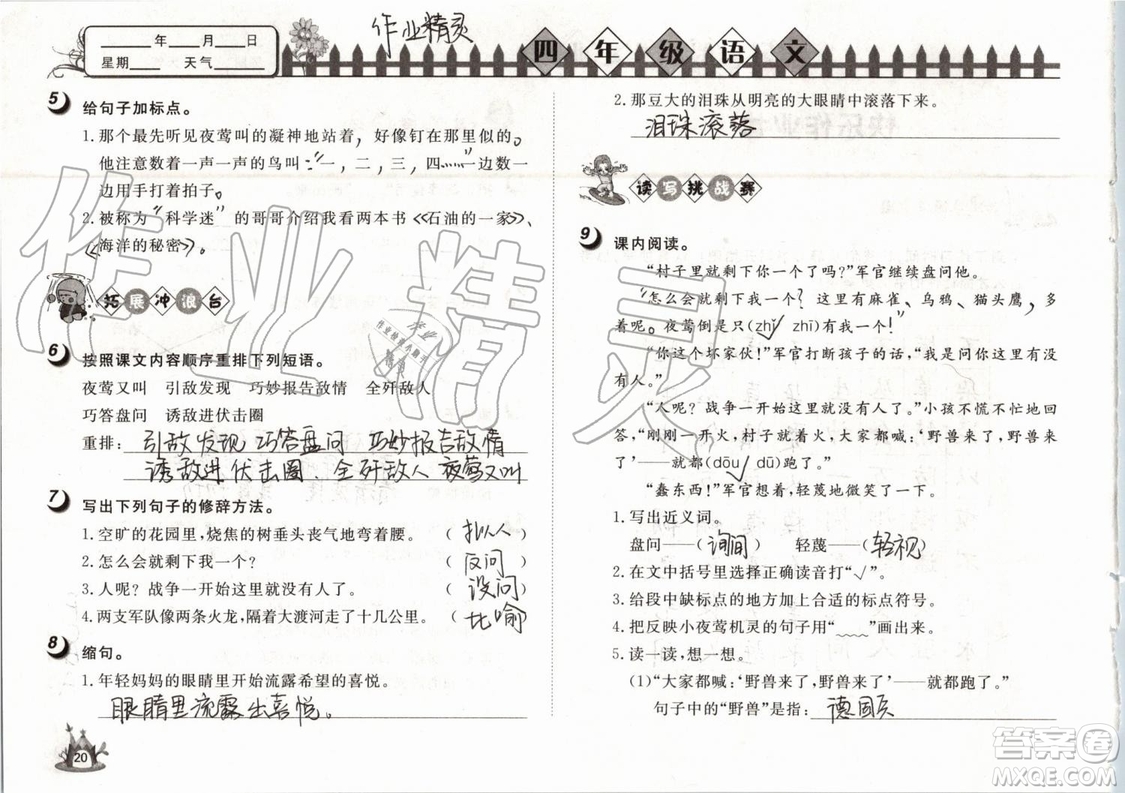 ____年____月____日
星期____ 天气____
作业精灵
四年级语文
5 给句子加标点。
1.那个最先听见夜莺叫的凝神地站着，好像钉在那里似的。
他注意数着一声一声的鸟叫：“一，二，三，四……”一边数
一边用手打着拍子。
2.被称为“科学迷”的哥哥介绍我看两本书《石油的一家》
《海洋的秘密》。
拓展冲浪台
6 按照课文内容顺序重排下列短语。
夜莺又叫 引敌发现 巧妙报告敌情 全歼敌人
巧答盘问 诱敌进伏击圈
重排：引敌发现 巧答盘问 巧妙报告敌情
诱敌进伏击圈 全歼敌人 夜莺又叫
7 写出下列句子的修辞方法。
1.空旷的花园里，烧焦的树垂头丧气地弯着腰。（拟人）
2.怎么会就剩下我一个？（反问）
3.人呢？战争一开始这里就没有人了。（设问）
4.两支军队像两条火龙，隔着大渡河走了十几公里。（比喻）
8 缩句。
1.年轻妈妈的眼睛里开始流露希望的喜悦。
眼睛里流露出喜悦。
20
2.那豆大的泪珠从明亮的大眼睛中滚落下来。
泪珠滚落
读写挑战赛
9 课内阅读。
“村子里就剩下你一个了吗？”军官继续盘问他。
“怎么会就剩下我一个？”小孩说，“这里有麻雀、乌鸦、猫头鹰，多
着呢。夜莺倒是只（zhǐ√ zhī）有我一个！”
“你这个坏家伙！”军官打断孩子的话，“我是问你这里还有没
有人。”
“人呢？战争一开始这里就没有人了。”小孩不慌不忙地回
答，“刚刚一开火，村子就着火，大家都喊：‘野兽来了，野兽来了’
——就都（dōu√ dū）跑了。”
“蠢东西！”军官想着，轻蔑地微笑了一下。
1.写出近义词。
盘问——（询问） 轻蔑——（轻视）
2.在文中括号里选择正确读音打“√”。
3.给段中缺标点的地方加上合适的标点符号。
4.把反映小夜莺机灵的句子用“﹏﹏”画出来。
5.读一读，想一想。
(1)“大家都喊：‘野兽来了，野兽来了’——就都跑了。”
句子中的“野兽”是指：德国兵
作业精灵
答案圈
MXQE.COM